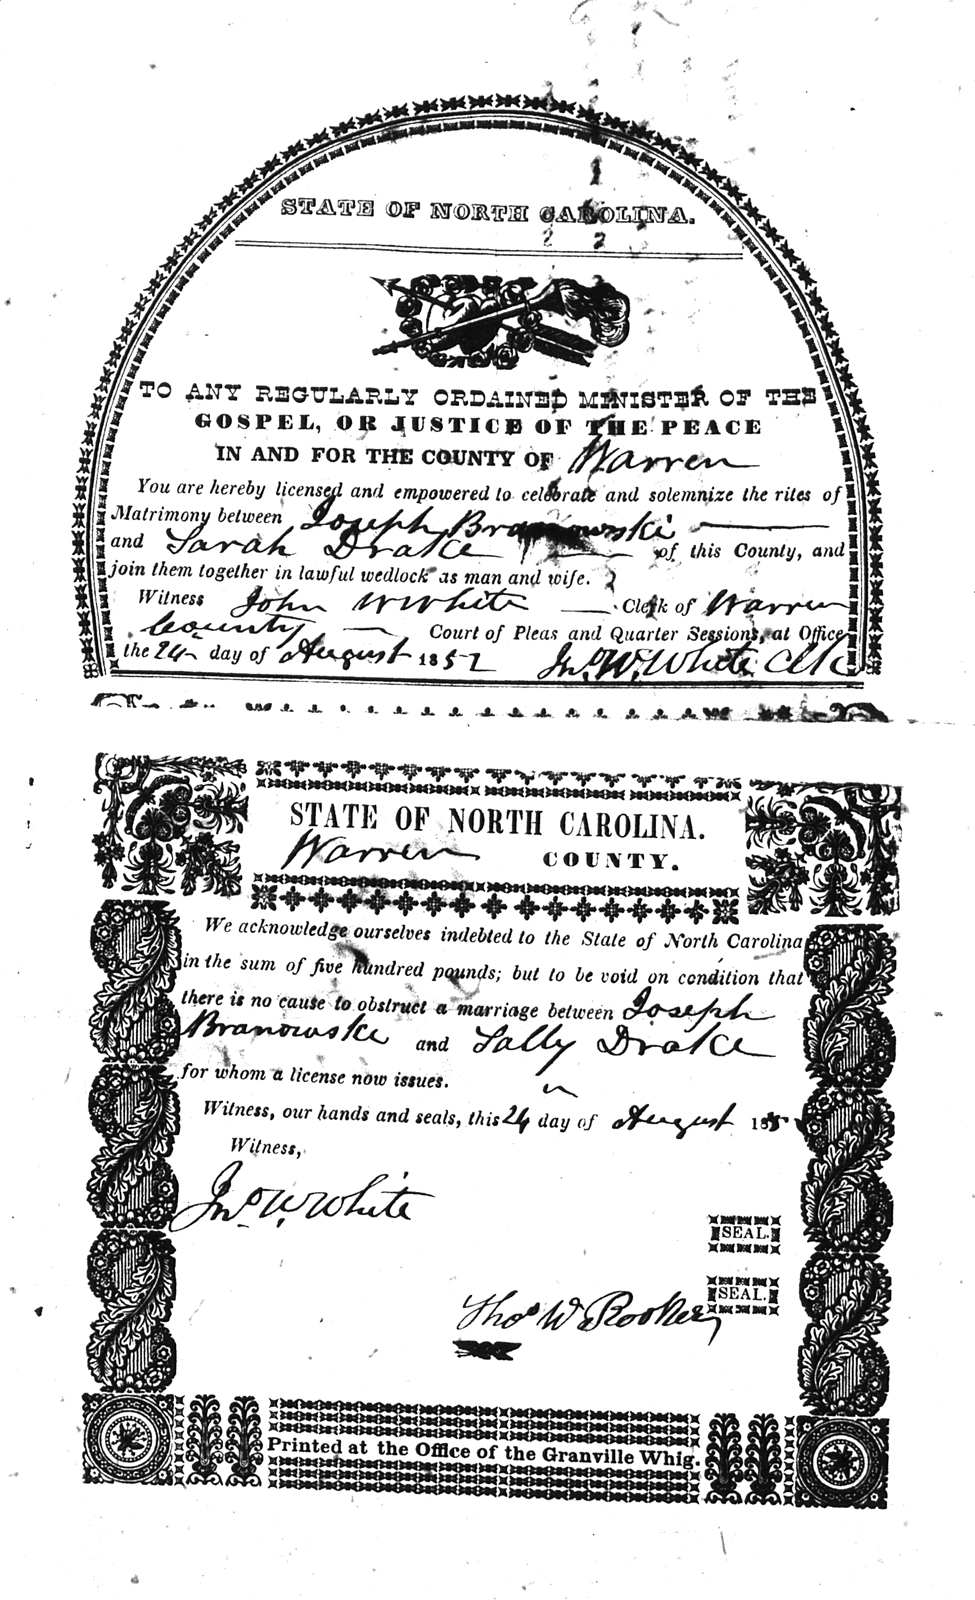 STATE OF NORTH CAROLINA.
TO ANY REGULARLY ORDAINED MINISTER OF THE
GOSPEL, OR JUSTICE OF THE PEACE
IN AND FOR THE COUNTY OF Warren
You are hereby licensed and empowered to celebrate and solemnize the rites of
Matrimony between Joseph Branowski
and Sarah Drake of this County, and
join them together in lawful wedlock as man and wife.
Witness John W White Clerk of Warren
County Court of Pleas and Quarter Sessions, at Office
the 24 day of August 1852 Jno. W. White Clk
STATE OF NORTH CAROLINA.
Warren COUNTY.
We acknowledge ourselves indebted to the State of North Carolina
in the sum of five hundred pounds; but to be void on condition that
there is no cause to obstruct a marriage between Joseph
Branowske and Sally Drake
for whom a license now issues.
Witness, our hands and seals, this 24 day of August 185
Witness,
Jno. W. White
SEAL.
SEAL.
Thos W Rooker
Printed at the Office of the Granville Whig.